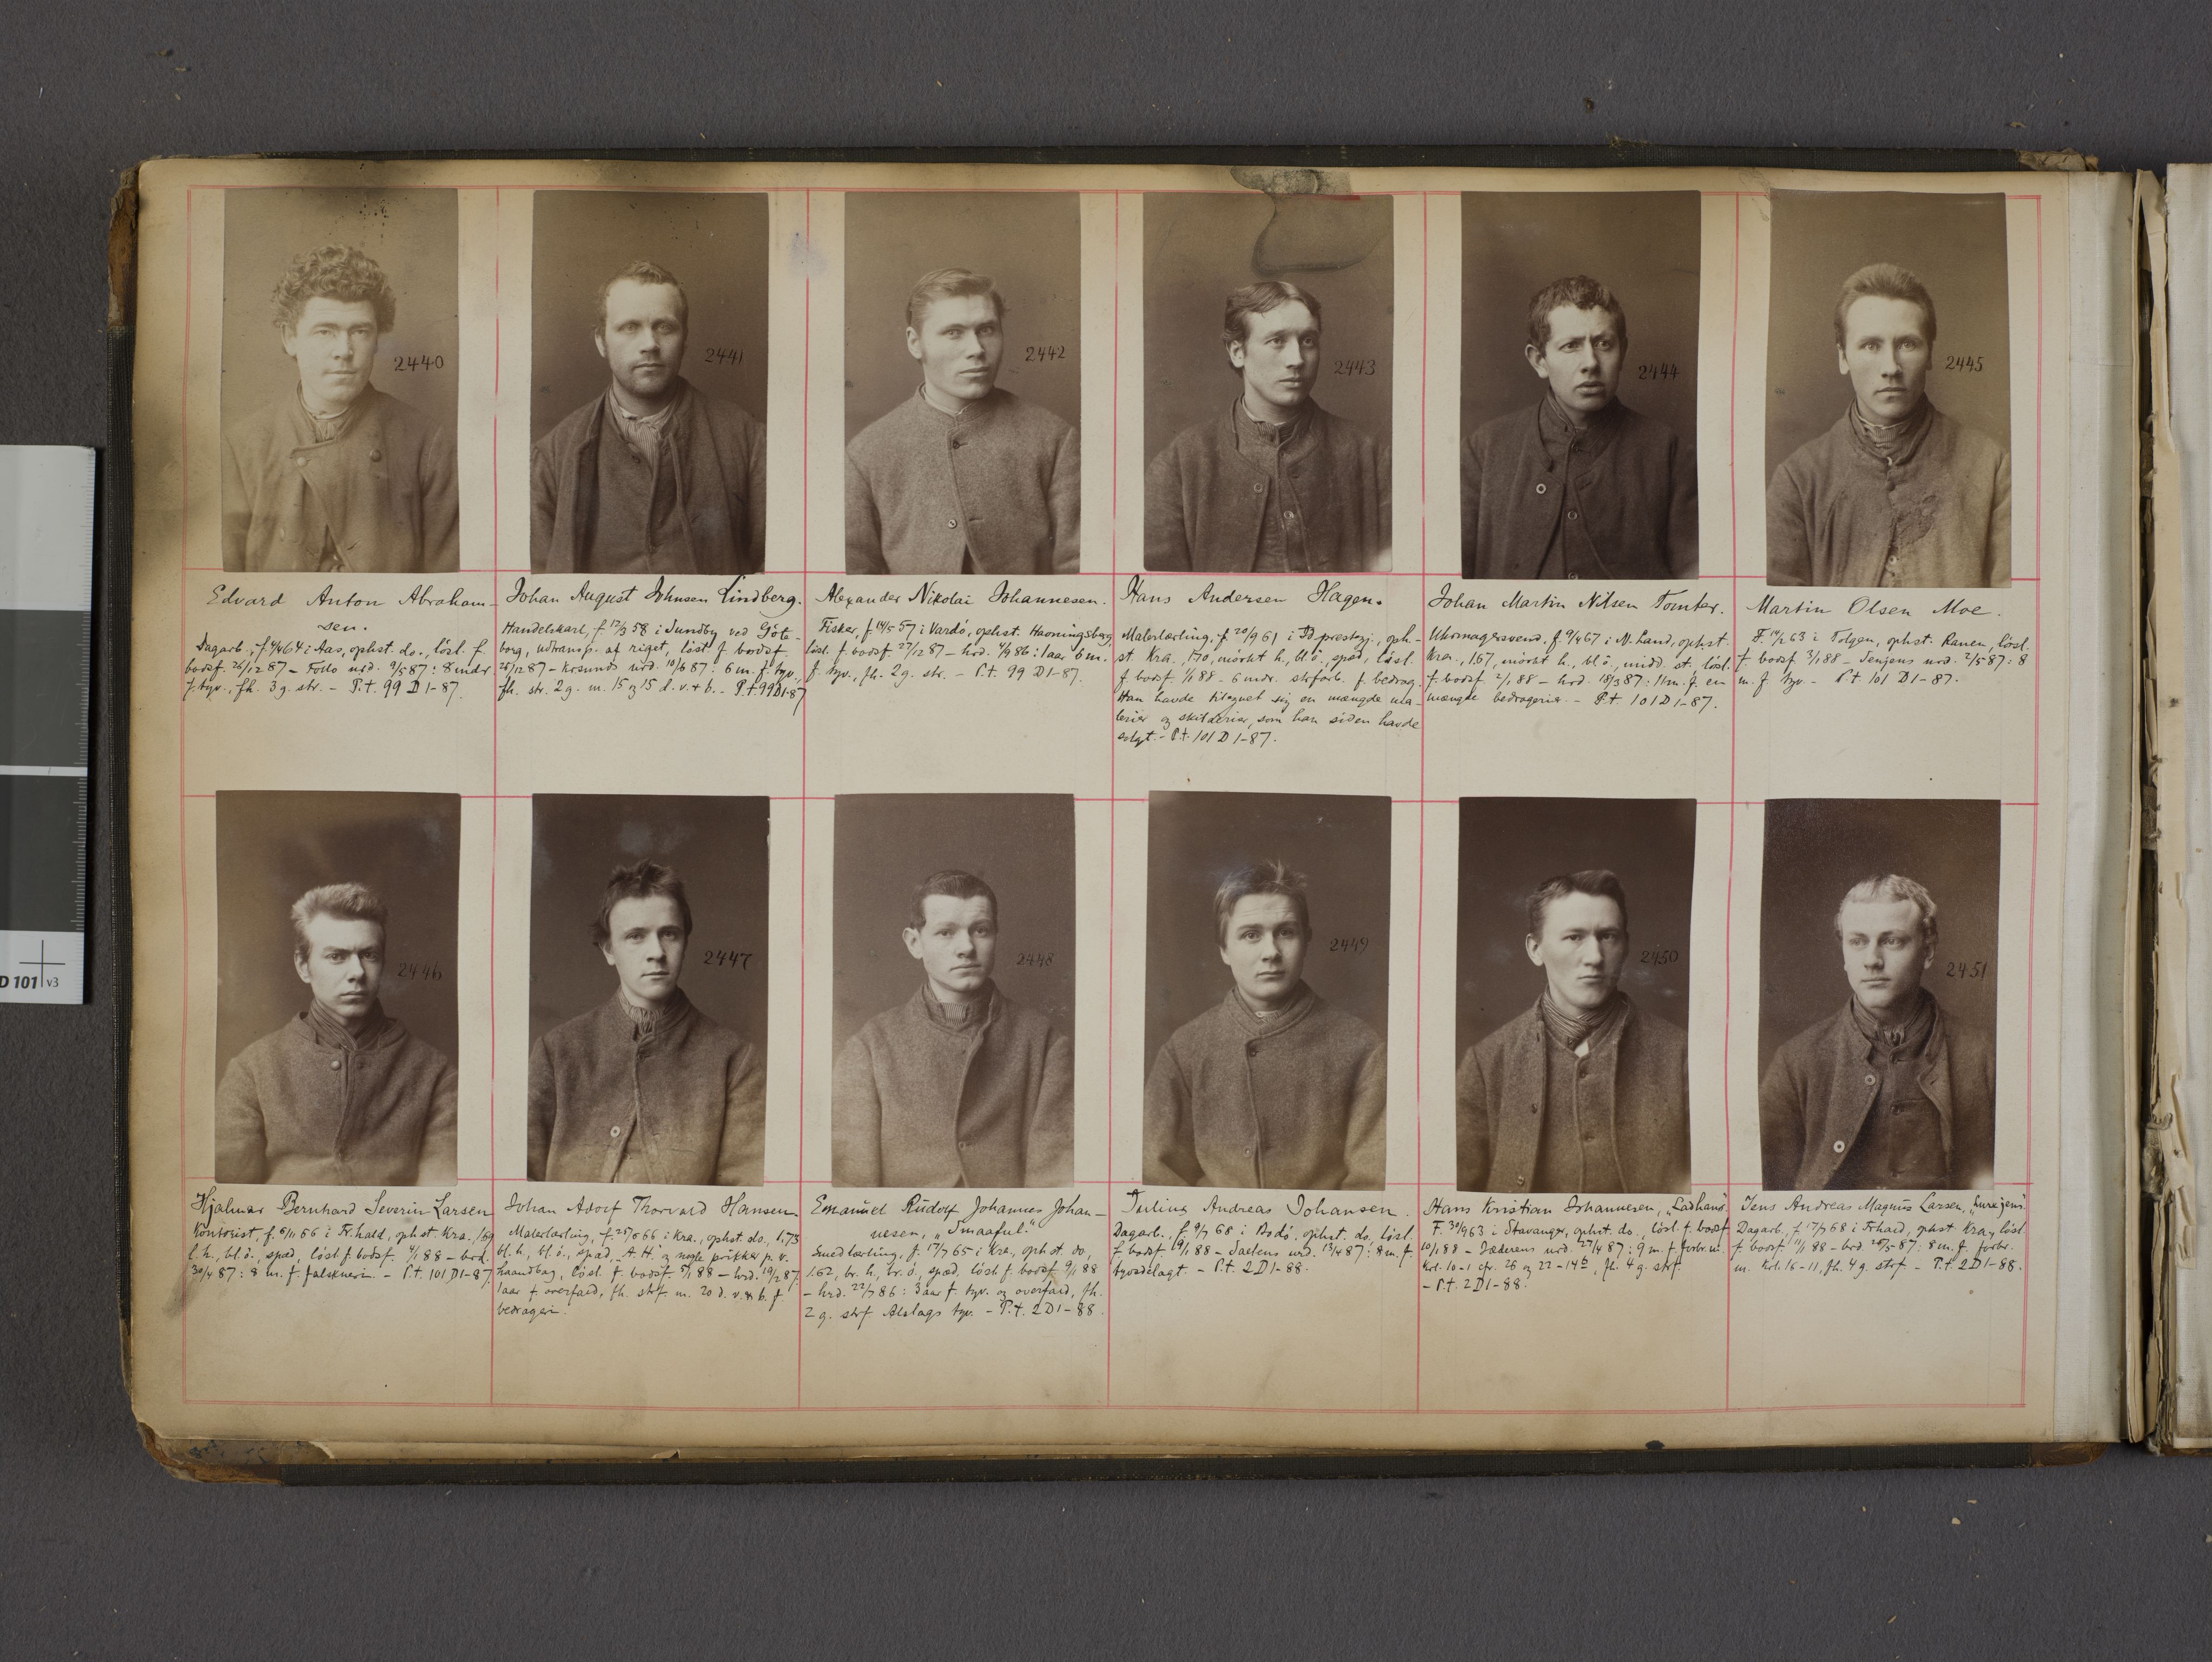 2440
2441
2442
2443
2444
2445
Edvard Anton Abraham-
sen.
Dagarb., f. 4/4 64 i Aas, ophst. do., lösl. f.
bodsf. 26/12 87 – Follo nrd. 9/5 87: 8 mdr
f. tyv., fh. 3 g. str. – P.t. 99 D 1-87.
Johan August Johnsen Lindberg.
Handelskarl, f. 17/3 58 i Sundby ved Göte-
borg, udtransp. af riget, löst. f. bodsf.
26/12 87 – nrd. 10/6 87: 6 m. f. tyv.,
fh. str. 2 g. m. 15 og 15 d. v. & b. – P.t. 99 D 1-87
Alexander Nikolai Johannesen.
Fisker, f. 14/5 57 i Vardö, ophst. Havningsberg,
lösl. f. bodsf. 27/12 87 – hrd. 4/9 86: 1 aar 6 m.
f. tyv., fh. 2 g. str. – P.t. 99 D 1-87.
Hans Andersen Hagen.
Malerlærling, f. 20/9 61 i Id prestegj., oph-
st. Kra., 1.70, mörkt h., bl. ö., spæd, lösl.
f. bodsf. 1/1 88 – 6 mdr. strfarb. f. bedrag.
Han havde tilegnet sig en mængde ma-
lerier og skilderier, som han siden havde
solgt. – P.t. 101 D 1-87.
Johan Martin Nilsen Tomter.
Uhrmagersvend, f. 9/4 67 i N. Land, ophst.
Kra., 1.67, mörkt h., bl. ö., midd. st., lösl.
f. bodsf. 2/1 88 – hrd. 18/3 87: 11 m. f. en
mængde bedragerier. – P.t. 101 D 1-87.
Martin Olsen Moe.
F. 14/2 63 i Tolgen, ophst. Ranen, lösl.
f. bodsf. 3/1 88 – Senjens nrd. 2/5 87: 8
m. f. tyv. – P.t. 101 D 1-87.
2446
2447
2448
2449
2450
2451
Hjalmar Bernhard Severin Larsen
Kontorist, f. 6/11 66 i Fr.hald, ophst. Kra., 1.69
l. h., bl. ö., spæd, lösl. f. bodsf. 4/1 88 – brd.
30/4 87: 8 m. f. falskneri. – P.t. 101 D 1-87
Johan Adolf Thorvald Hansen.
Malerlærling, f. 25/6 66 i Kra., ophst. do., 1.73
bl. h., bl. ö., spæd, A. H. og nogle prikker p. v.
haandbag, lösl. f. bodsf. 5/1 88 – hrd. 19/2 87
1 aar f. overfald, fh. strf. m. 20 d. v. & b. f.
bedrageri.
Emanuel Rudolf Johannes Johan-
nesen, „Smaaful."
Smedlærling, f. 17/7 65 i Kra., ophst. do.,
1.62, br. h., br. ö., spæd, lösl. f. bodsf. 9/1 88
– hrd. 22/7 86: 3 aar f. tyv. og overfald, fh.
2 g. strf. tyv. – P.t. 2 D 1-88.
Andreas Johansen.
Dagarb., f. 9/7 68 i Bodö, ophst. do., lösl.
f. bodsf. 9/1 88 – Saltens nrd. 13/4 87: 8 m. f.
tyvsdelagt. – P.t. 2 D 1-88.
Hans Kristian Johannesen, „Ladhans".
F. 30/9 63 i Stavanger, ophst. do., lösl. f. bodsf.
10/1 88 – Jæderens nrd. 27/4 87: 9 m. f. forbr. m.
Krl. 10-1 cfr. 26 og 22-14 b, fh. 4 g. strf.
– P.t. 2 D 1-88.
Jens Andreas Magnus Larsen,
Dagarb., f. 17/7 68 i Frhald, ophst. Kra., lösl.
f. bodsf. 11/1 88 – brd. 20/5 87: 8 m. f. forbr.
m. Krl. 16-11, fh. 4 g. strf. – P.t. 2 D 1-88.
D 101 v3